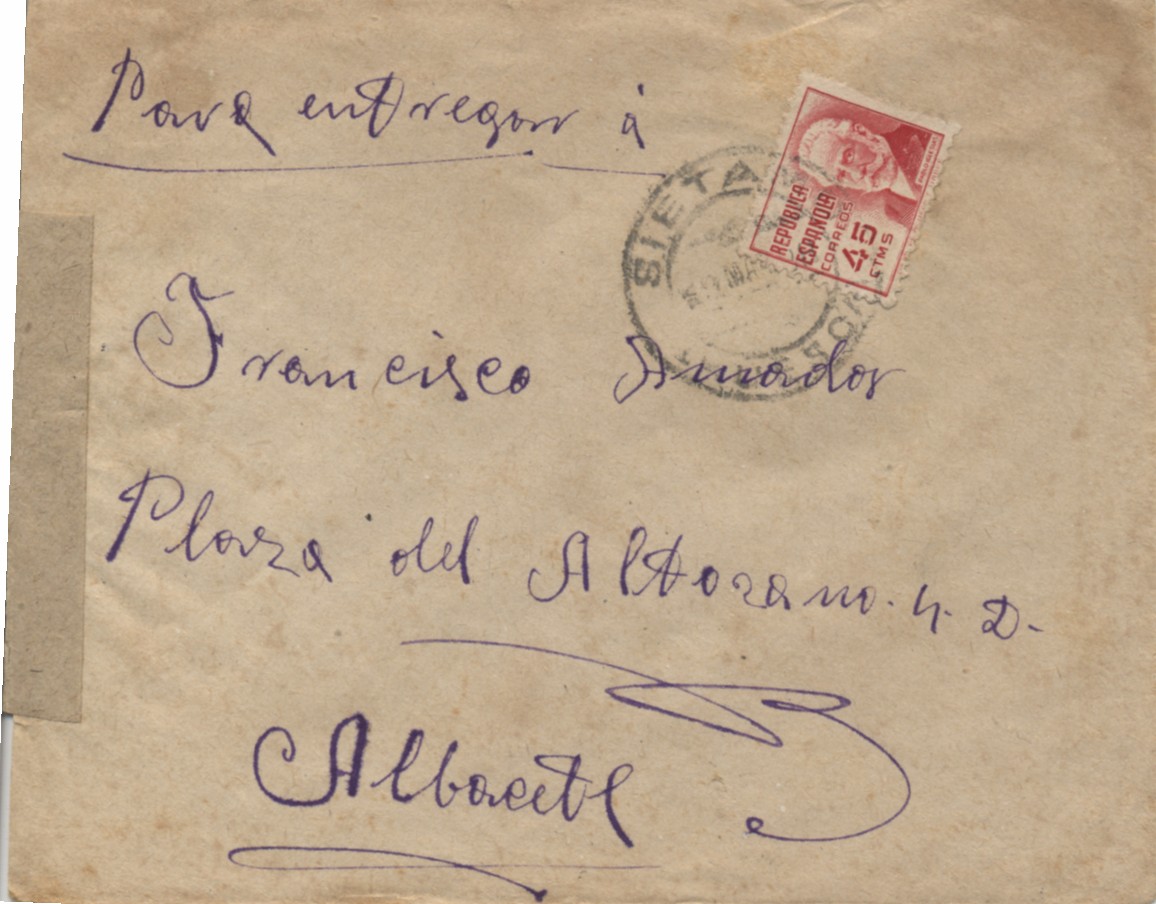 Para entregar á
REPUBLICA
ESPAÑOLA
CORREOS
45
CTMS
SIETA
Francisco Amador
Plaza del Altozano. 4. D.
Albacete